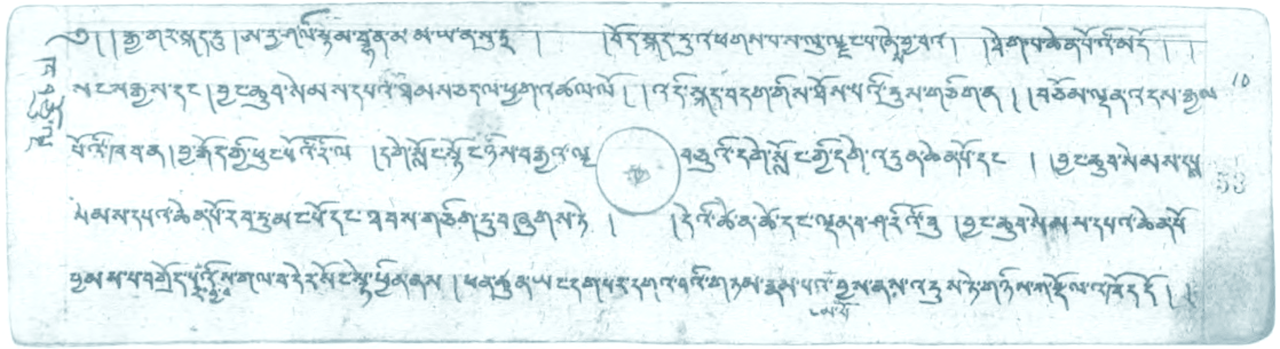 ༄། །རྒྱ་གར་སྐད་དུ། ཨ་རྱ་ཤ་ལི་སྟམ་བྷ་ན་མ་མ་ཡ་ན་སུ་ཏྲ། །བོད་སྐད་དུ་འཕགས་པ་ས་ལུ་ལྗང་པ་ཞེས་བྱ་བའ། །ཐེག་པ་ཆེན་པོའི་མདོ། །
སངས་རྒྱས་དང་། བྱང་ཆུབ་སེམས་དཔའ་ཐམས་ཅད་ལ་ཕྱག་འཚལ་ལོ། །འདི་སྐད་བདག་གིས་ཐོས་པའི་དུས་གཅིག་ན། །བཅོམ་ལྡན་འདས་རྒྱལ 10
པོའི་ཁབ་ན། བྱ་རྒོད་ཀྱི་ཕུང་པོའི་རི་ལ། དགེ་སློང་སྟོང་ཉིས་བརྒྱའ་ལྔ་བཅུའི་དགེ་སློང་གྱི་དགེ་འདུན་ཆེན་པོ་དང་། །བྱང་ཆུབ་སེམས་དཔའ 53
སེམས་དཔའ་ཆེན་པོ་རབ་དུ་མང་པོ་དང་ཐབས་གཅིག་དུ་བཞུགས་ཏེ། །དེའི་ཚེ་ན་ཚེ་དང་ལྡན་བ་ཤ་རིའི་བུ། བྱང་ཆུབ་སེམས་དཔའ་ཆེན་པོ
བྱམས་པ་བགྲོད་པའི་ས་ག་ལ་བ་དེར་སོང་སྟེ་ཕྱིན་ནས། ཕན་ཚུན་ཡང་དག་པར་དགའ་བའི་གཏམ་རྣམ་པའ་བྱས་ནས་འདུས་ཏེ་གཉིས་ག་རྡོལ་ལ་འཁོད་དོ། །
མང་པོ